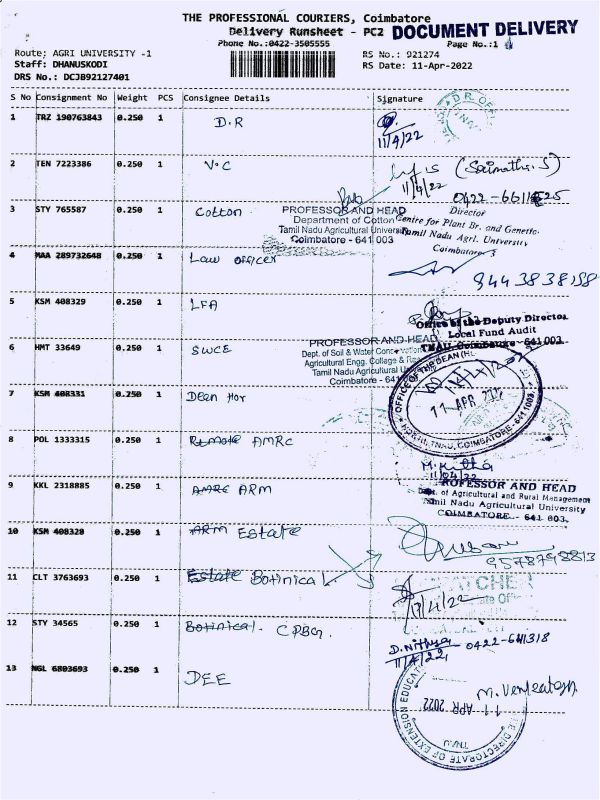 THE PROFESSIONAL COURIERS, Coimbatore
Delivery Runsheet - PC2 DOCUMENT DELIVERY
Phone No.:0422-3505555
Page No.:1
Route: AGRI UNIVERSITY -1
RS No.: 921274
Staff: DHANUSKODI
RS Date: 11-Apr-2022
DRS No.: DCJB92127401
S No Consignment No Weight PCS Consignee Details Signature
1 TRZ 190763843 0.250 1 D.R
11/4/22
2 TEN 7223386 0.250 1 V.C
11/4/22
3 STY 765587 0.250 1 Cotton
PROFESSOR AND HEAD
Department of Cotton
Tamil Nadu Agricultural University
Coimbatore - 641 003
Director
Centre for Plant Br. and Genetics
Tamil Nadu Agrl. University
Coimbatore 3
4 MAA 289732648 0.250 1 Law officer
9443838158
5 KSM 408329 0.250 1 LFA
Office of the Deputy Director
Local Fund Audit
TNAU Coimbatore - 641 003
6 HMT 33649 0.250 1 SWCE
PROFESSOR AND HEAD
Dept. of Soil & Water
Agricultural Engg. College &
Tamil Nadu Agricultural
Coimbatore - 641
7 KSM 408331 0.250 1 Dean Hor
OFFICE OF THE DEAN
11 APR
TNAU, COIMBATORE - 641 003
8 POL 1333315 0.250 1 Remote AMRC
9 KKL 2318885 0.250 1 AMRC ARM
11/04/22
PROFESSOR AND HEAD
Dept. of Agricultural and Rural Management
Tamil Nadu Agricultural University
COIMBATORE - 641 003.
10 KSM 408328 0.250 1 ARM Estate
9578798813
11 CLT 3763693 0.250 1 Estate Botinical
12 STY 34565 0.250 1 Botinical. CPBG.
D.Nithya 0422-6611318
11/4/22
13 NGL 6803693 0.250 1 DEE
11 APR 2022
DIRECTORATE OF EXTENSION EDUCATION
TNAU